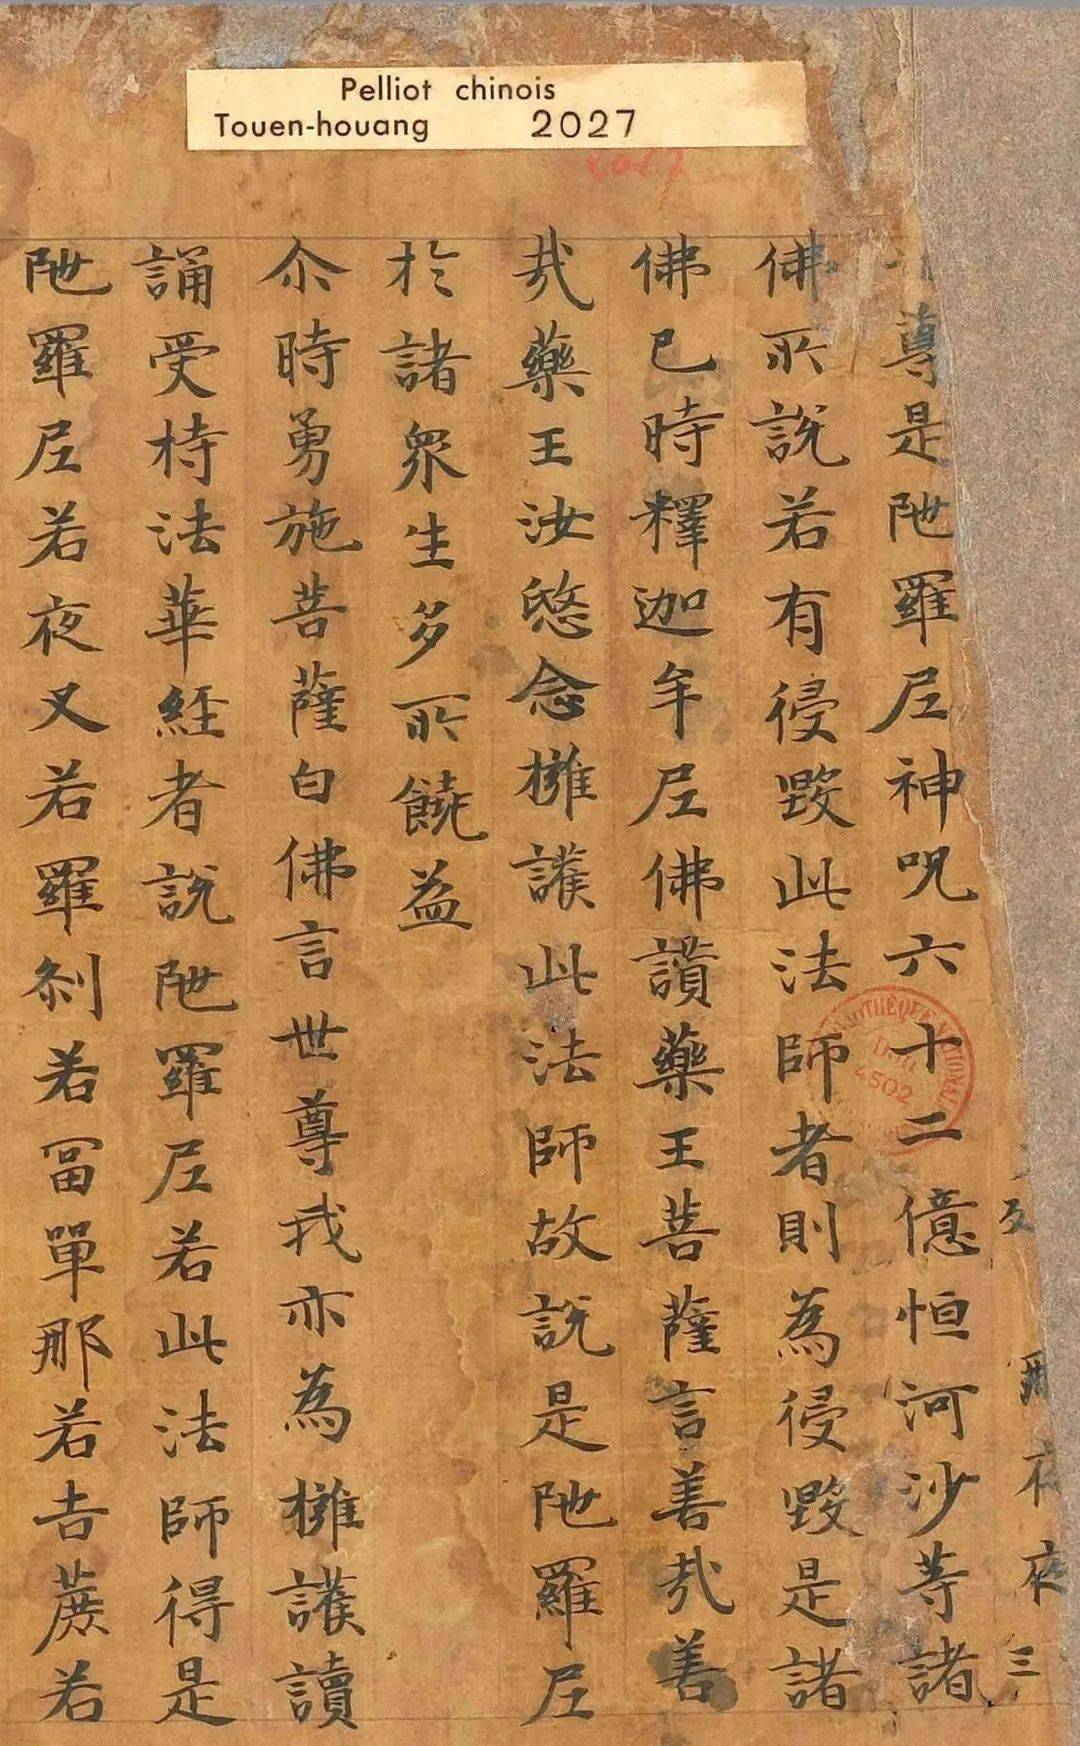 Pelliot chinois
Touen-houang 2027
2027
夜
三
尊是陁羅尼神呪六十二億恒河沙等諸
佛所說若有侵毀此法師者則為侵毀是諸
佛已時釋迦牟尼佛讚藥王菩薩言善哉善
哉藥王汝愍念擁護此法師故說是陁羅尼
於諸眾生多所饒益
尒時勇施菩薩白佛言世尊我亦為擁護讀
誦受持法華經者說陁羅尼若此法師得是
陁羅尼若夜叉若羅剎若冨單那若吉蔗若
4502